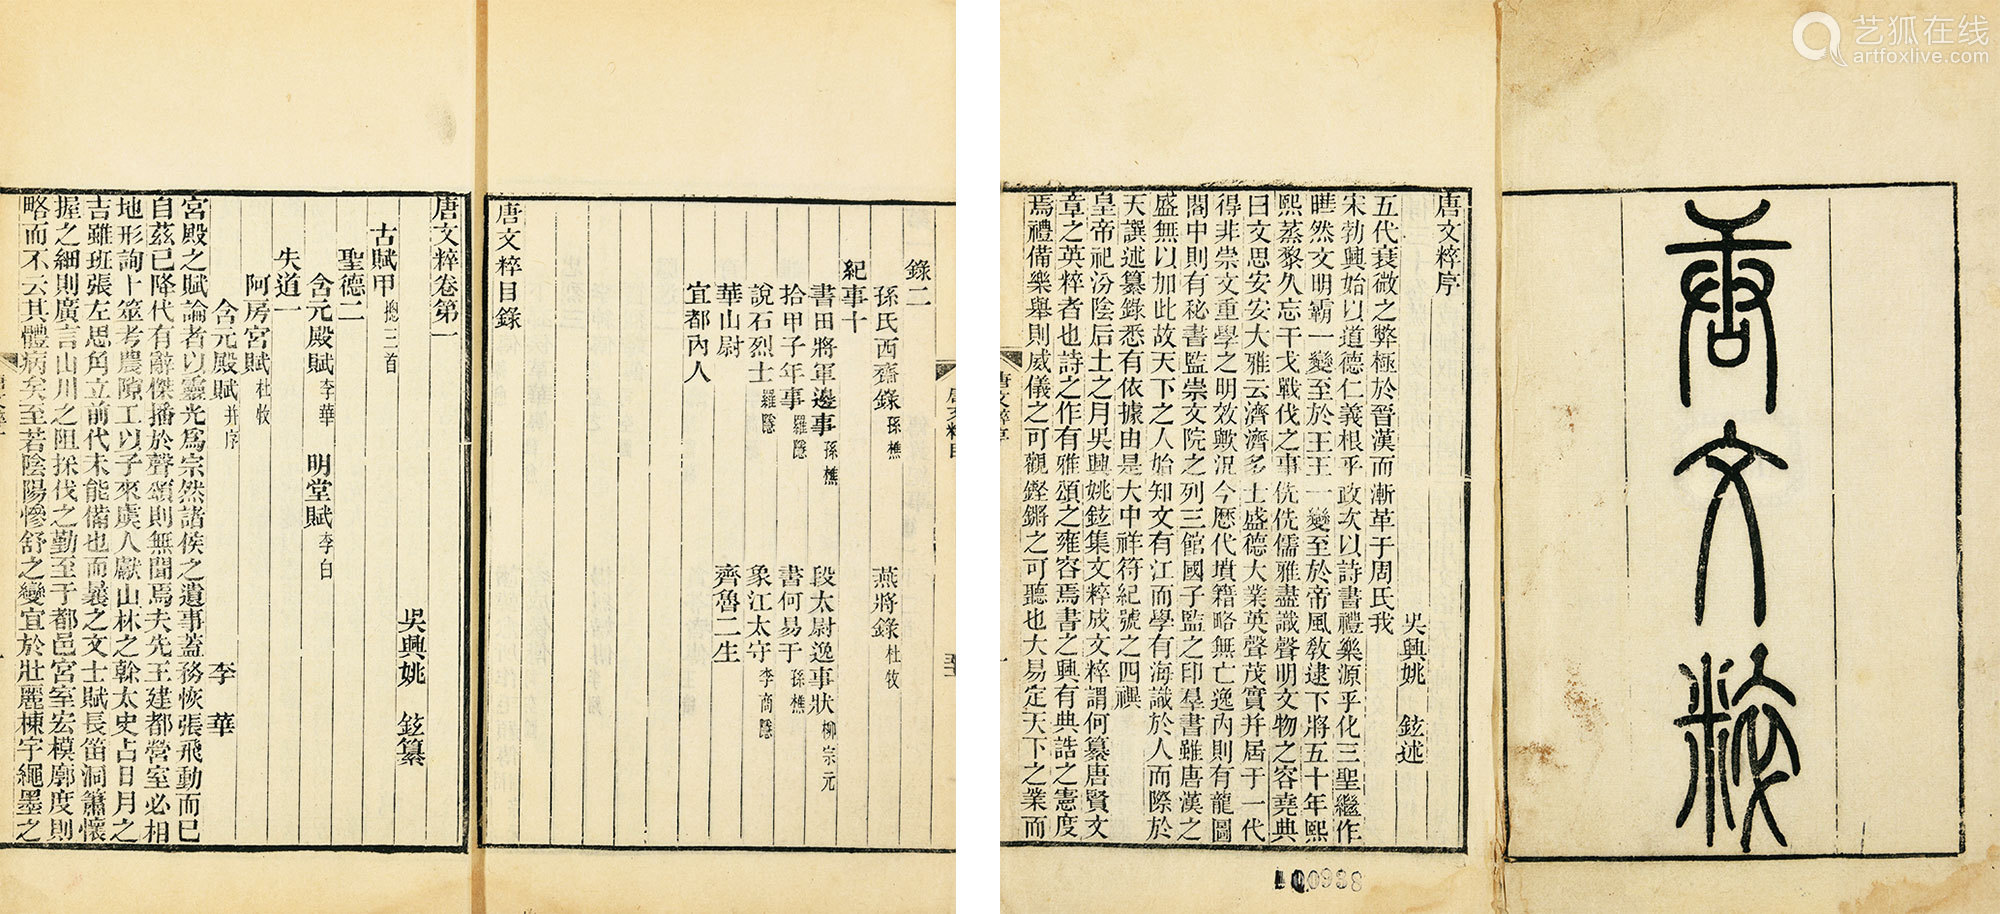 唐文粹
唐文粹序
吳興姚 鉉述
五代衰微之弊極於晉漢而漸革于周氏我
宋勃興始以道德仁義根乎政次以詩書禮樂源乎化三聖繼作
曄然文明霸一變至於王王一變至於帝風敎逮下將五十年熙
熙蒸黎久忘干戈戰伐之事侁侁儒雅盡識聲明文物之容堯典
曰文思安安大雅云濟濟多士盛德大業英聲茂實并屆于一代
得非崇文重學之明效歟況今歷代墳籍略無亡逸內則有龍圖
閣中則有秘書監崇文院之列三館國子監之印羣書雖唐漢之
盛無以加此故天下之人始知文有江而學有海識於人而際於
天譔述纂錄悉有依據由是大中祥符紀號之四禩
皇帝祀汾陰后土之月吳興姚鉉集文粹成文粹謂何纂唐賢文
章之英粹者也詩之作有雅頌之雍容焉書之興有典誥之憲度
焉禮備樂舉則威儀之可觀鏗鏘之可聽也大易定天下之業而
唐文粹序
一
錄二
孫氏西齋錄 孫樵 燕將錄 杜牧
紀事十
書田將軍邊事 孫樵 段太尉逸事狀 柳宗元
拾甲子年事 羅隱 書何易于 孫樵
說石烈士 羅隱 象江太守 李商隱
華山尉 齊魯二生
宜都內人
唐文粹目錄
唐文粹目
唐文粹卷第一
吳興姚 鉉纂
古賦甲 摠三首
聖德二
含元殿賦 李華 明堂賦 李白
失道一
阿房宮賦 杜牧
含元殿賦 并序 李 華
宮殿之賦論者以靈光爲宗然諸侯之遺事蓋務恢張飛動而已
自茲已降代有辭傑播於聲頌則無聞焉夫先王建都營室必相
地形詢卜筮考農隙工以子來虞人獻山林之榦太史占日月之
吉雖班張左思角立前代未能備也而曩之文士賦長笛洞簫懷
握之細則廣言山川之阻採伐之勤至于都邑宮室宏模廓度則
略而不云其體病矣至若陰陽慘舒之變宜於壯麗棟宇繩墨之
100938
艺狐在线
artfoxlive.com